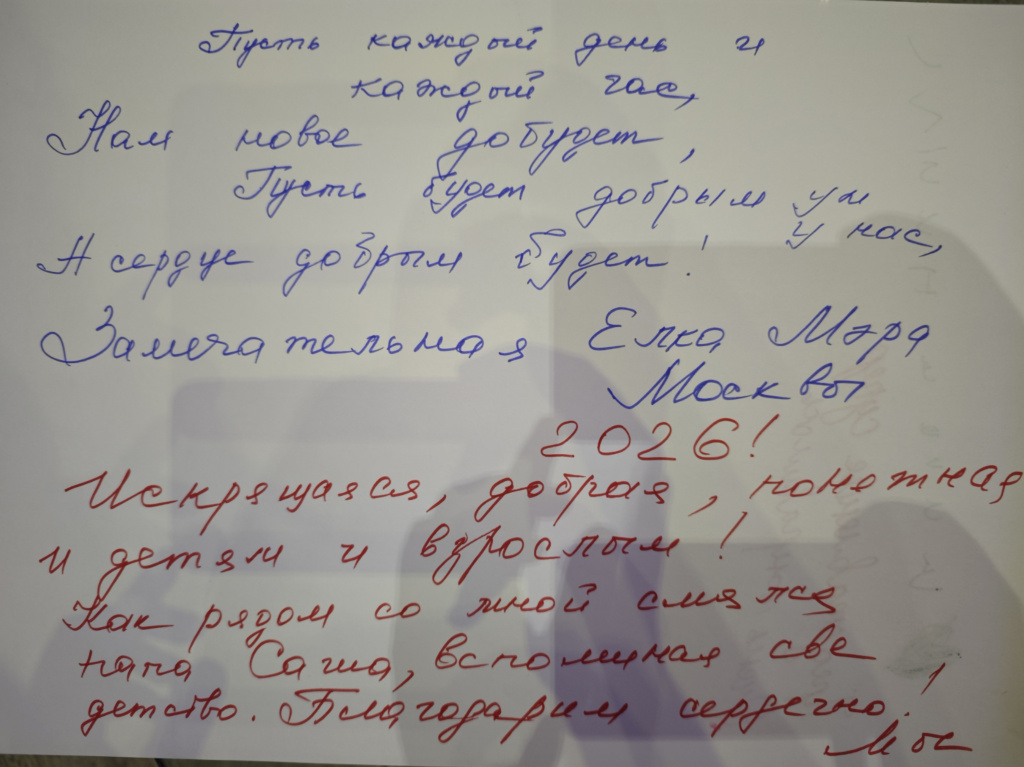 Пусть каждый день и
каждый час,
Нам новое добудет,
Пусть будет добрым ум
у нас,
А сердце добрым будет!
Замечательная Елка Мэра
Москвы
2026!
Искрящаяся, добрая,
и детям и взрослым!
Как рядом со мной смялся
папа Саша, вспоминая све
детство. Благодарим сердечно!